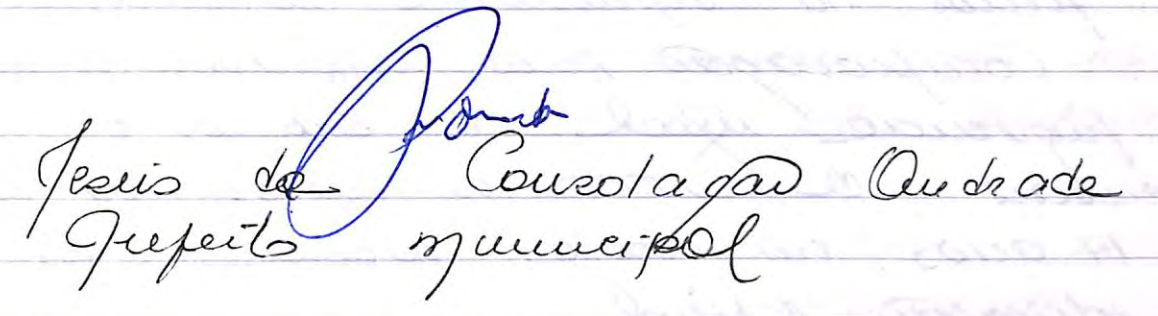 Jesus da Consolação Andrade
Prefeito Municipal